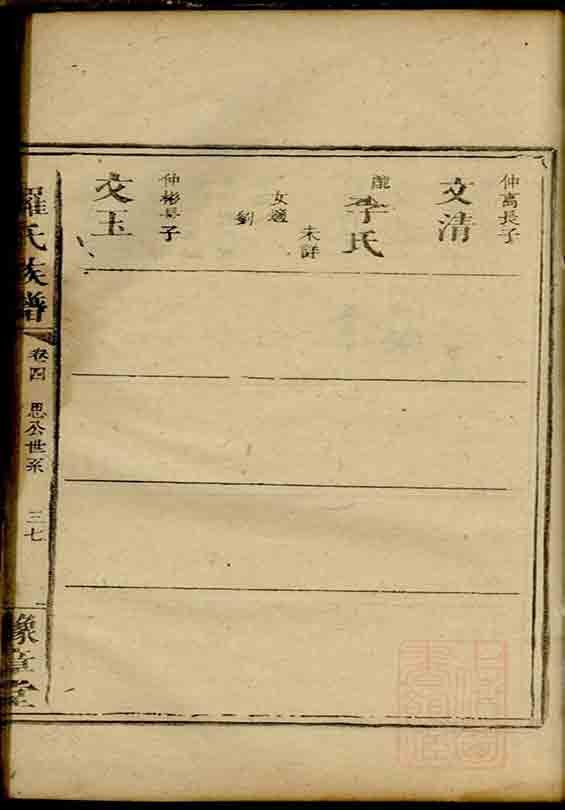 仲高長子
文清
李氏
未詳
女適
劉
仲彬長子
文玉
羅氏族譜
卷四
思公世系
三七
豫章堂